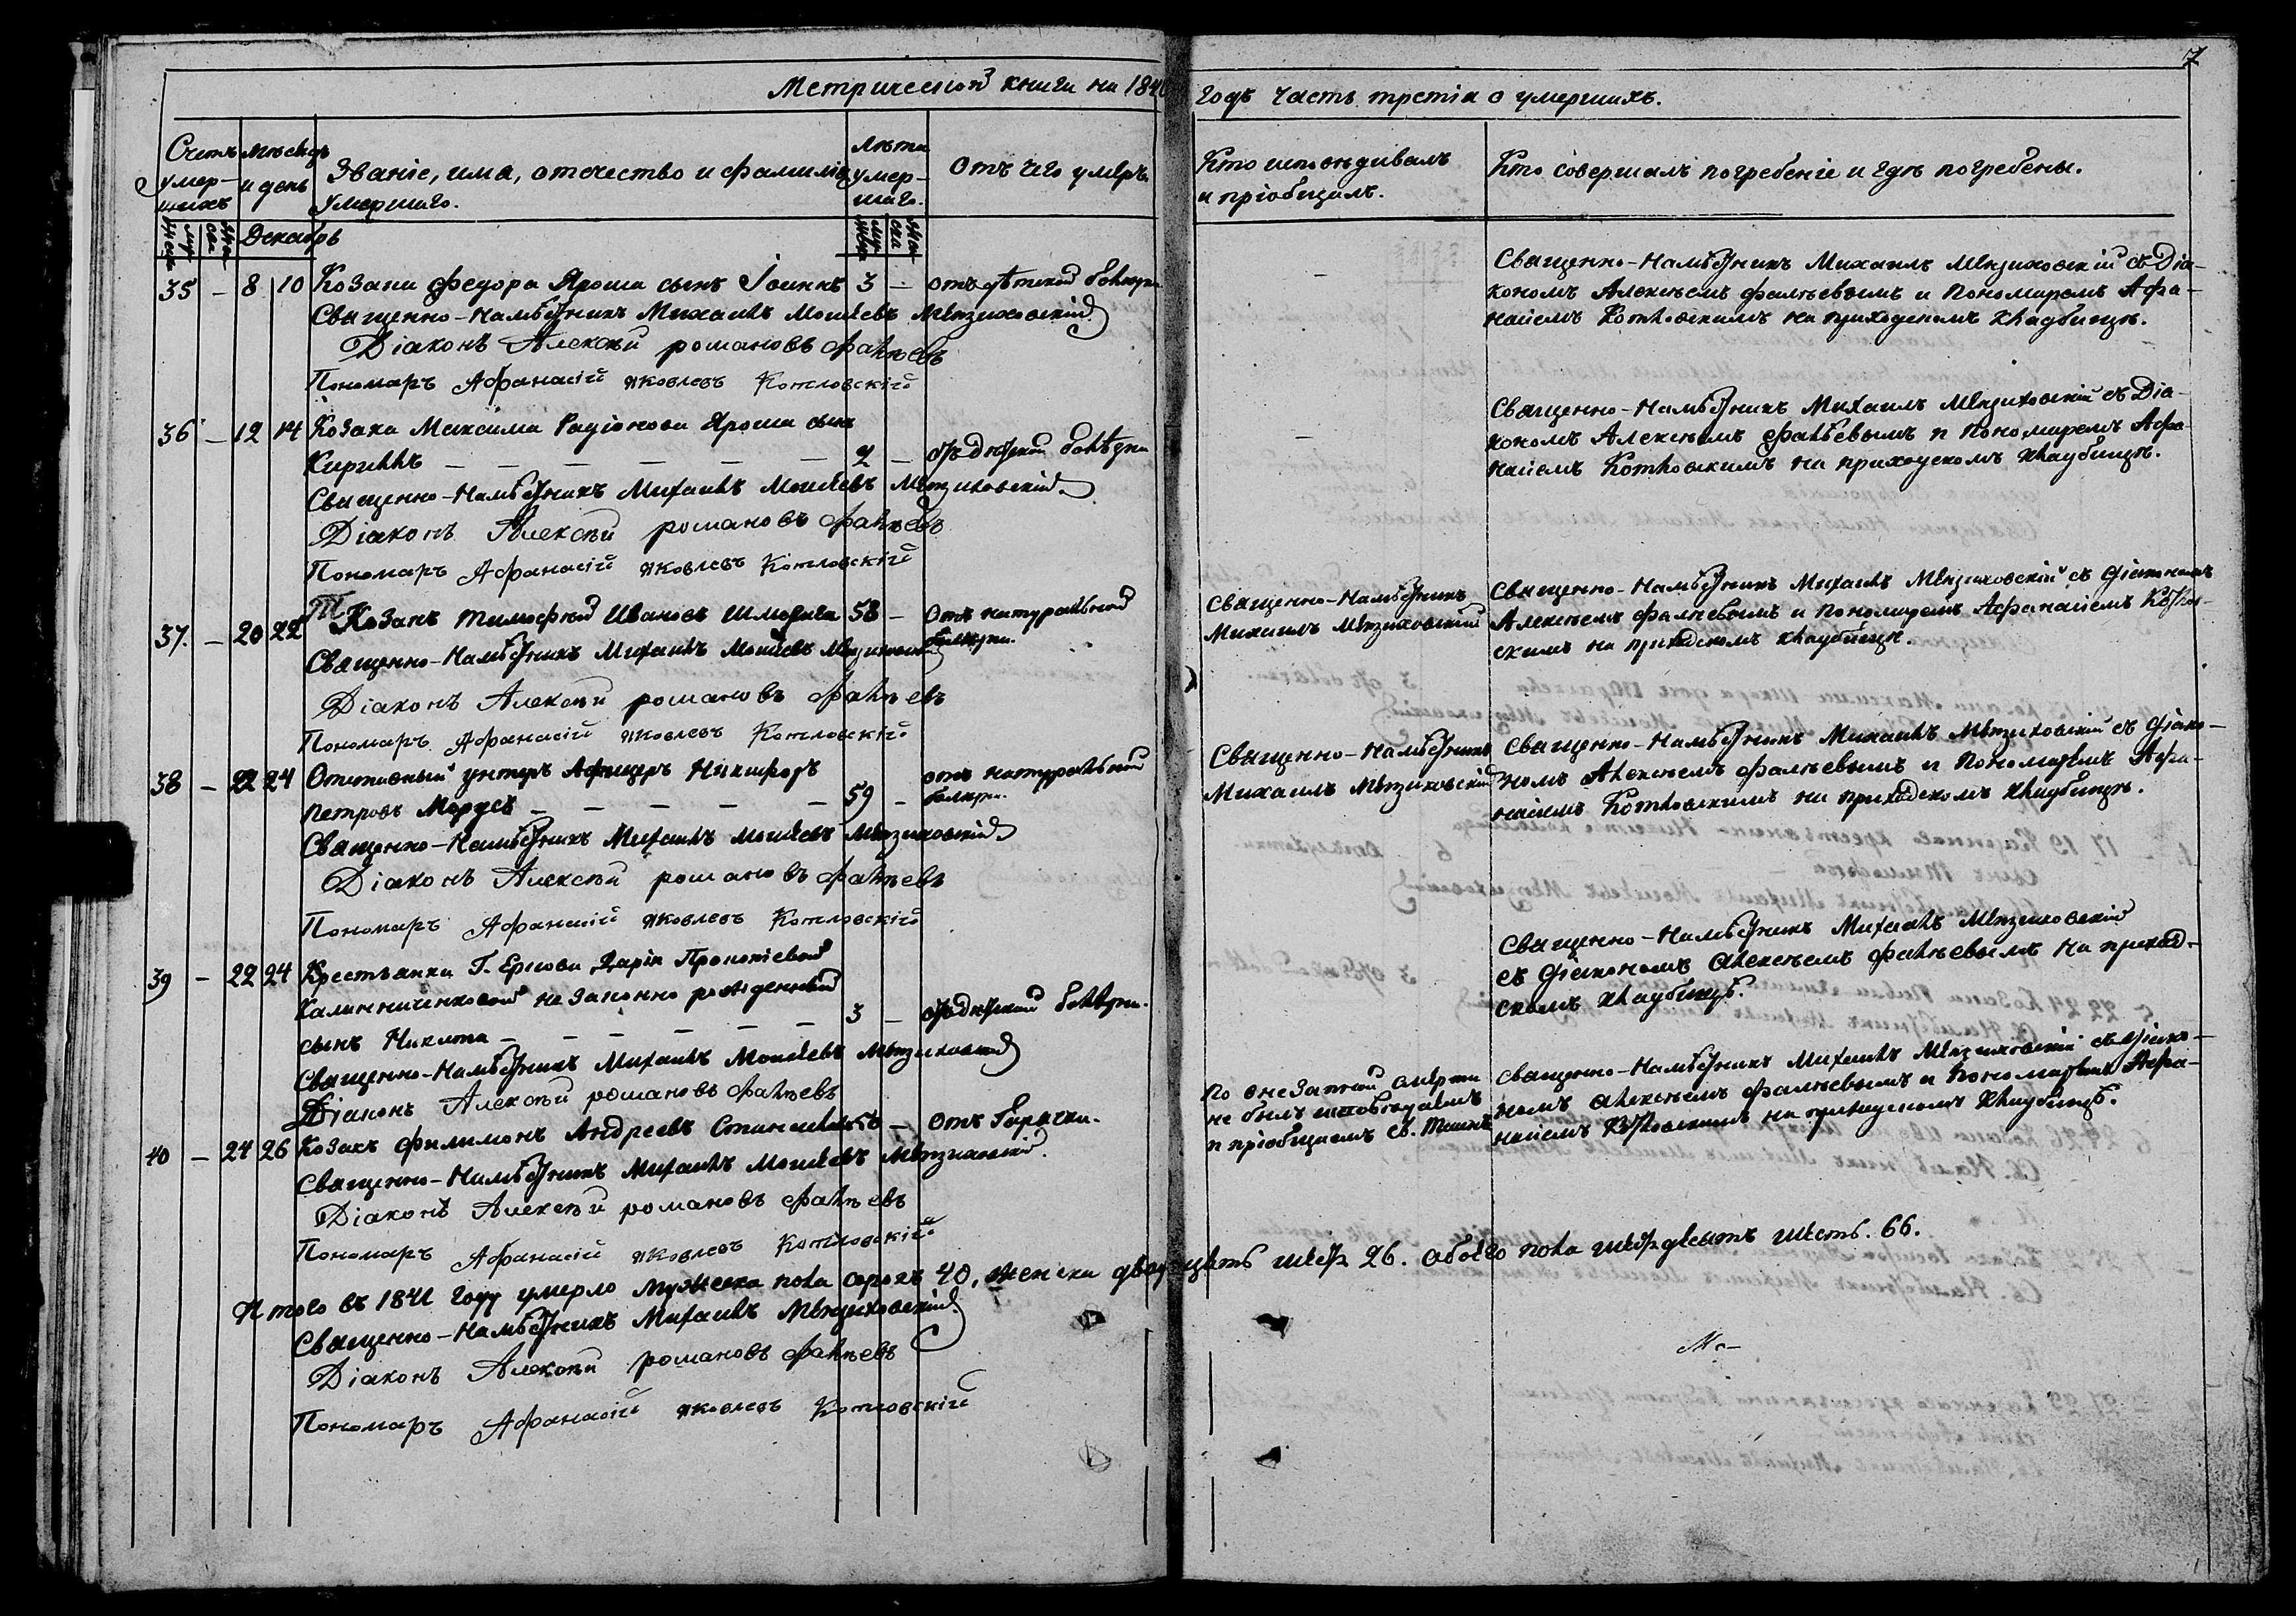 Метрической книги на 184
годъ часть третія о умершихъ.
7
Счетъ умер-шихъ
Мѣсяцъ и день
Званіе, имя, отчество и фамилія умершаго.
Лѣта умер-шаго.
Отъ чего умеръ.
Кто исповѣдывалъ и пріобщалъ.
Кто совершалъ погребеніе и гдѣ погребены.
Декабрь
35 – 8 10 Козака Федора Яроша сынъ Іоаннъ 3 – отъ дѣтской болѣзни
Священно-Намѣстникъ Михаилъ Моисеевъ
Діаконъ Алексѣй романовъ Фалѣевъ
Пономаръ Афанасій яковлевъ Котловскій
– Священно-Намѣстникъ Михаилъ съ Діа-
кономъ Алексѣемъ Фалѣевымъ и Пономаремъ Афа-
насіемъ Котловскимъ на приходскомъ кладбищѣ.
36 – 12 14 Козака Максима Радіонова Яроша сынъ
Кириллъ – – – – – – – отъ дѣтской болѣзни
Священно-Намѣстникъ Михаилъ Моисеевъ
Діаконъ Алексѣй романовъ Фалѣевъ
Пономаръ Афанасій яковлевъ Котловскій
– Священно-Намѣстникъ Михаилъ съ Діа-
кономъ Алексѣемъ Фалѣевымъ и Пономаремъ Афа-
насіемъ Котловскимъ на приходскомъ кладбищѣ.
37. – 20 22 Козакъ Тимофѣй Ивановъ 58 – Отъ натуральной
болѣзни.
Священно-Намѣстникъ Михаилъ Моисеевъ
Діаконъ Алексѣй романовъ Фалѣевъ
Пономаръ Афанасій яковлевъ Котловскій
Священно-Намѣстникъ
Михаилъ
Священно-Намѣстникъ Михаилъ съ Діакономъ
Алексѣемъ Фалѣевымъ и Пономаремъ Афанасіемъ Котлов-
скимъ на приходскомъ кладбищѣ.
38 – 22 24 Отставный унтеръ Афицеръ Никифоръ
Петровъ Морусъ – – – – – 59 – отъ натуральной
болѣзни.
Священно-Намѣстникъ Михаилъ Моисеевъ
Діаконъ Алексѣй романовъ Фалѣевъ
Пономаръ Афанасій яковлевъ Котловскій
Священно-Намѣстникъ
Михаилъ
Священно-Намѣстникъ Михаилъ съ Діако-
номъ Алексѣемъ Фалѣевымъ и Пономаремъ Афа-
насіемъ Котловскимъ на приходскомъ кладбищѣ.
39 – 22 24 Крестьянки Г. Дарiи Прокопіевой
Калинниченковой не законно рожденный
сынъ Никита – – – – – 3 – отъ дѣтской болѣзни.
Священно-Намѣстникъ Михаилъ Моисеевъ
Діаконъ Алексѣй романовъ Фалѣевъ
Священно-Намѣстникъ Михаилъ
съ Діакономъ Алексѣемъ Фалѣевымъ на приход-
скомъ кладбищѣ.
40 – 24 26 Козакъ Филимонъ Андреевъ – Отъ Горячки.
Священно-Намѣстникъ Михаилъ Моисеевъ
Діаконъ Алексѣй романовъ Фалѣевъ
Пономаръ Афанасій яковлевъ Котловскій
По внезапной смерти
не былъ исповѣдуемъ
и пріобщаемъ Св. Таинъ
Священно-Намѣстникъ Михаилъ съ Діако-
номъ Алексѣемъ Фалѣевымъ и Пономаремъ Афа-
насіемъ Котловскимъ на приходскомъ кладбищѣ.
Итого въ 184 году умерло мужеска пола сорокъ 40, женска двадцать шесть 26. обоего пола шестдесятъ шесть. 66.
Священно-Намѣстникъ Михаилъ
Діаконъ Алексѣй романовъ Фалѣевъ
Пономаръ Афанасій яковлевъ Котловскій